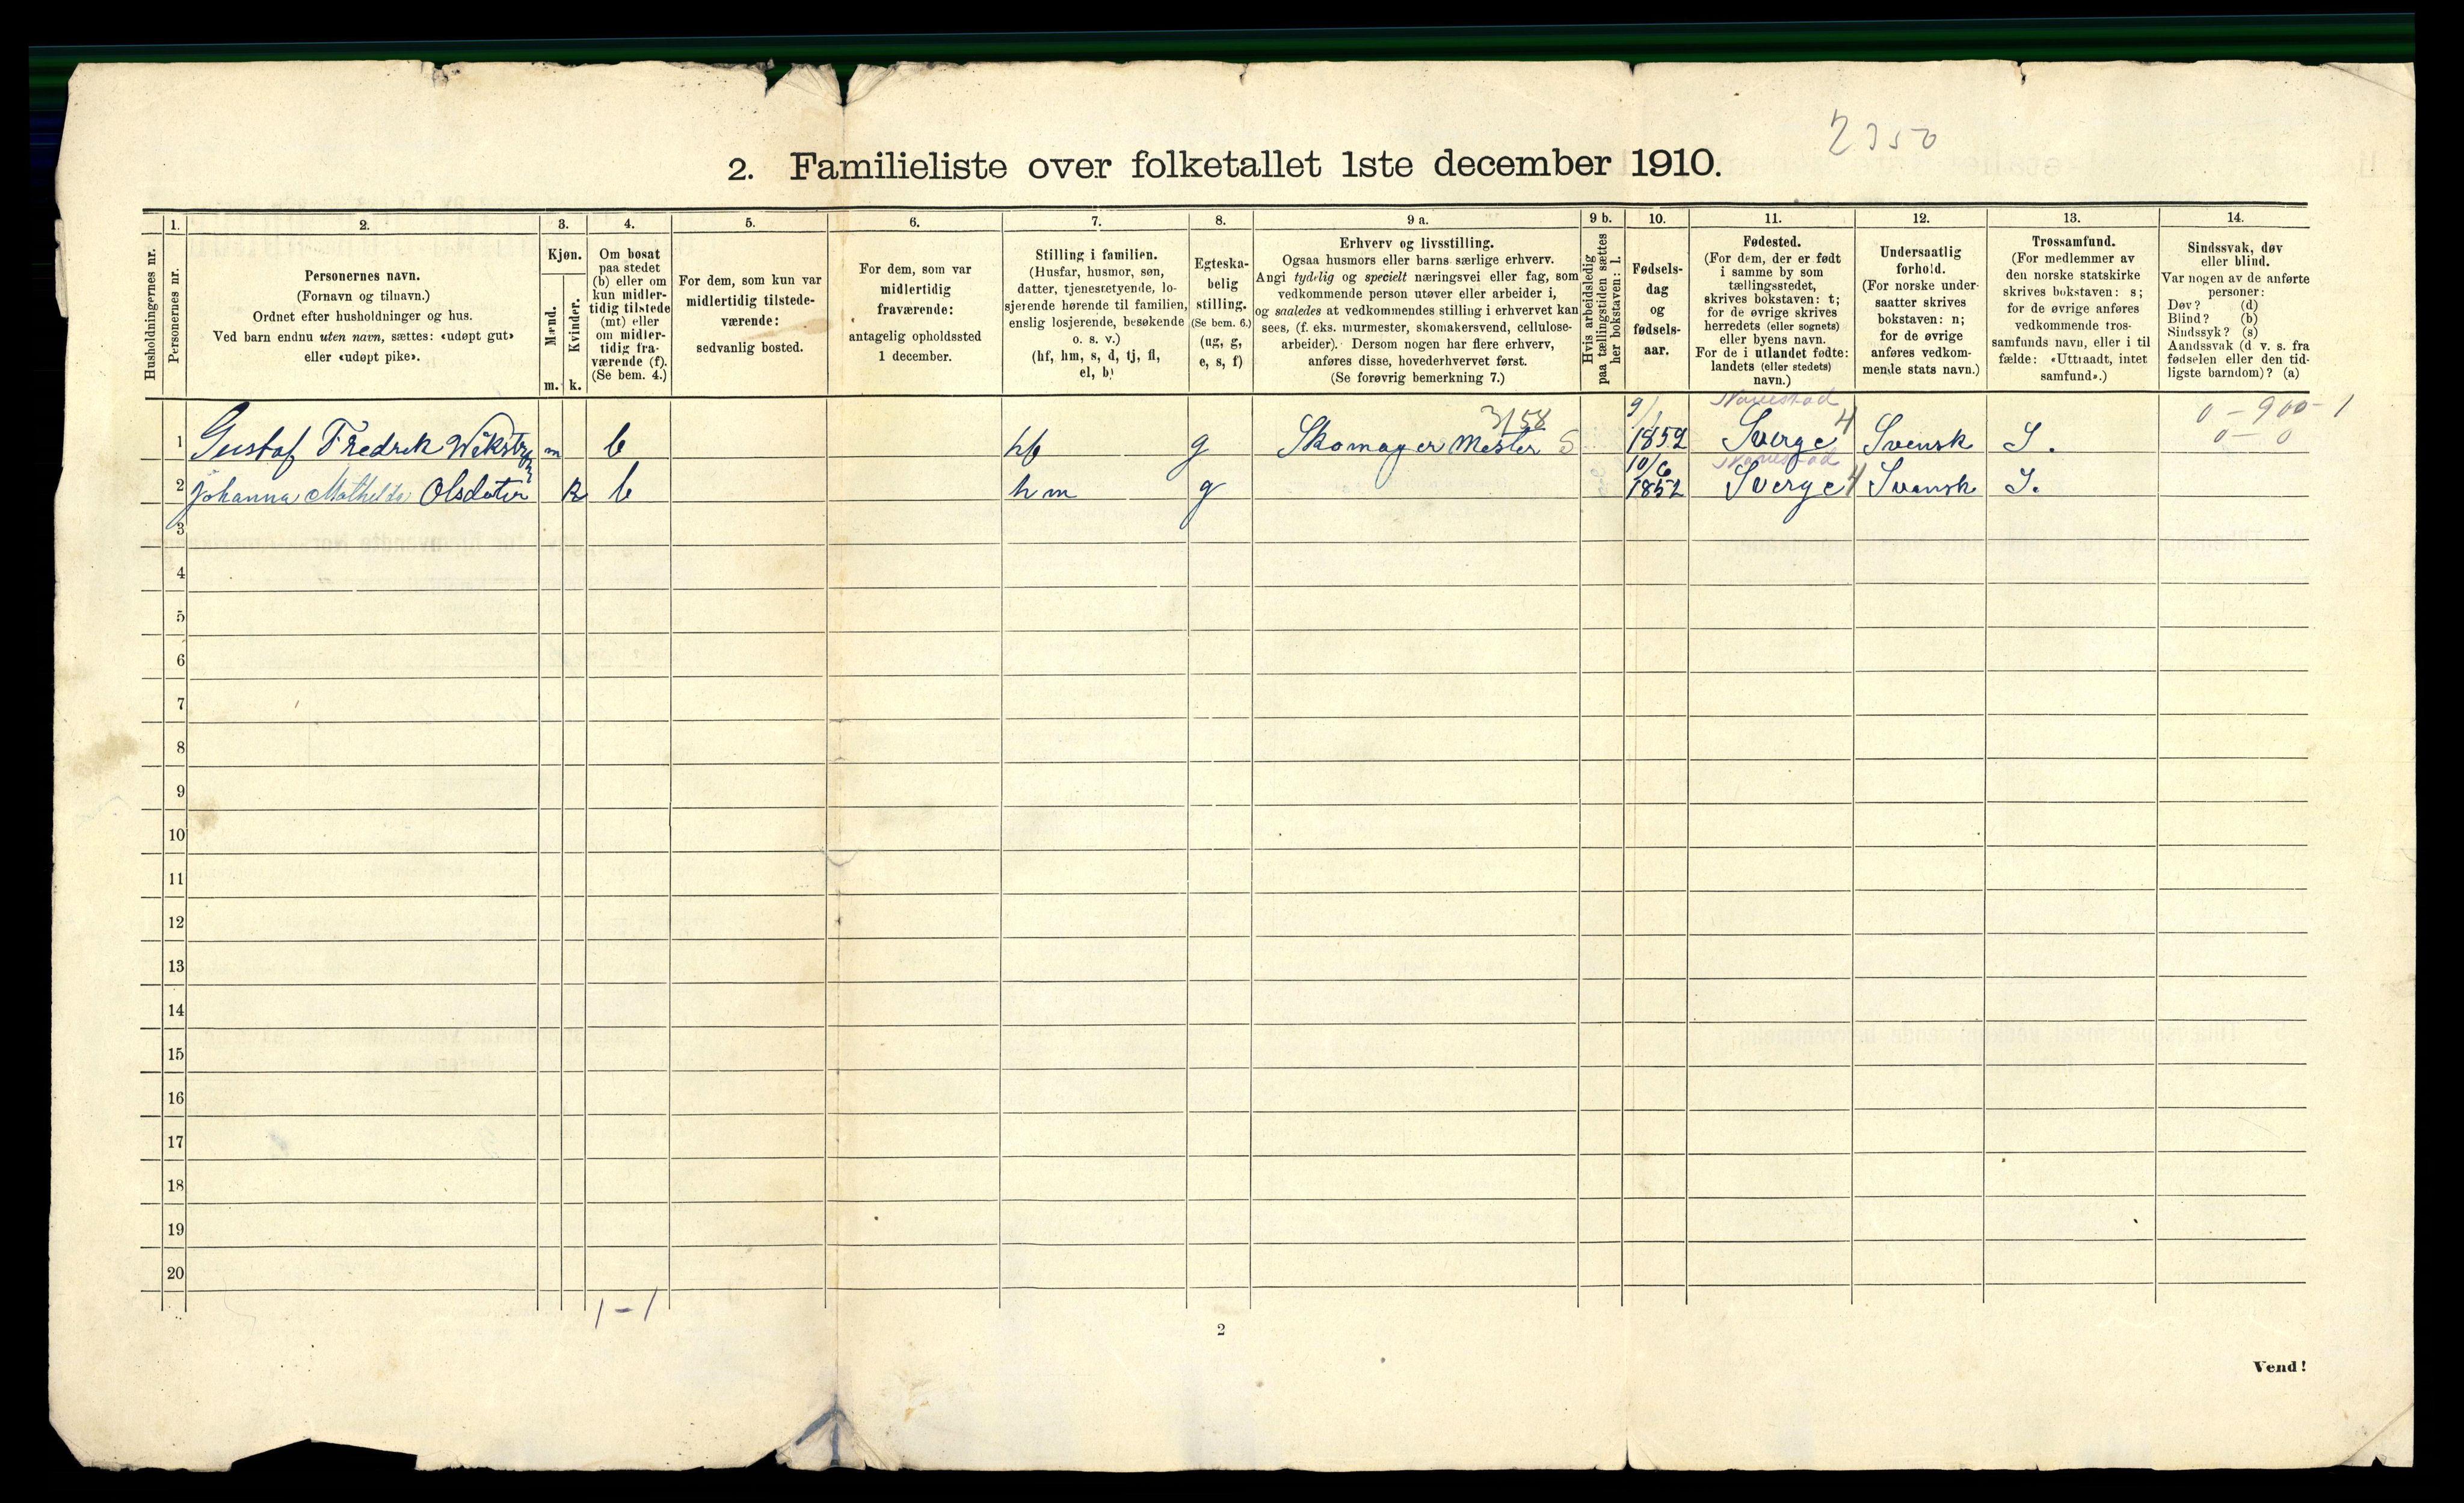 2350
2. Familieliste over folketallet 1ste december 1910.
Husholdningernes nr.
1.
Personernes nr.
2.
Personernes navn.
(Fornavn og tilnavn.)
Ordnet efter husholdninger og hus.
Ved barn endnu uten navn, sættes: «udøpt gut»
eller «udøpt pike».
3.
Kjøn.
Mænd.
m.
Kvinder.
k.
4.
Om bosat
paa stedet
(b) eller om
kun midler-
tidig tilstede
(mt) eller
om midler-
tidig fra-
værende (f).
(Se bem. 4.)
5.
For dem, som kun var
midlertidig tilstede-
værende:
sedvanlig bosted.
6.
For dem, som var
midlertidig
fraværende:
antagelig opholdssted
1 december.
7.
Stilling i familien.
(Husfar, husmor, søn,
datter, tjenestetyende, lo-
sjerende hørende til familien,
enslig losjerende, besøkende
o. s. v.)
(hf, hm, s, d, tj, fl,
el, b)
8.
Egteska-
belig
stilling.
(Se bem. 6.)
(ug, g,
e, s, f)
9 a.
Erhverv og livsstilling.
Ogsaa husmors eller barns særlige erhverv.
Angi tydelig og specielt næringsvei eller fag, som
vedkommende person utøver eller arbeider i,
og saaledes at vedkommendes stilling i erhvervet kan
sees, (f. eks. murmester, skomakersvend, cellulose-
arbeider). Dersom nogen har flere erhverv,
anføres disse, hovederhvervet først.
(Se forøvrig bemerkning 7.)
9 b.
Hvis arbeidsledig
paa tællingstiden sættes
her bokstaven: l.
10.
Fødsels-
dag
og
fødsels-
aar.
11.
Fødested.
(For dem, der er født
i samme by som
tællingsstedet,
skrives bokstaven: t;
for de øvrige skrives
herredets (eller sognets)
eller byens navn.
For de i utlandet fødte:
landets (eller stedets)
navn.)
12.
Undersaatlig
forhold.
(For norske under-
saatter skrives
bokstaven: n;
for de øvrige
anføres vedkom-
mende stats navn.)
13.
Trossamfund.
(For medlemmer av
den norske statskirke
skrives bokstaven: s;
for de øvrige anføres
vedkommende tros-
samfunds navn, eller i til
fælde: «Uttraadt, intet
samfund».)
14.
Sindssvak, døv
eller blind.
Var nogen av de anførte
personer:
Døv? (d)
Blind? (b)
Sindssyk? (s)
Aandssvak (d v. s. fra
fødselen eller den tid-
ligste barndom)? (a)
3/58 9/1 0 - 900 - 1
1 Gustaf Fredrek Wekstrøm m b hf g Skomager Mester S 1852 Sverge 4 Svensk S. 0 - 0
10/6
2 Johanna Mathelda Olsdater k b hm g 1852 Sverge 4 Svensk S.
3
4
5
6
7
8
9
10
11
12
13
14
15
16
17
18
19
20
1 - 1
2
Vend!